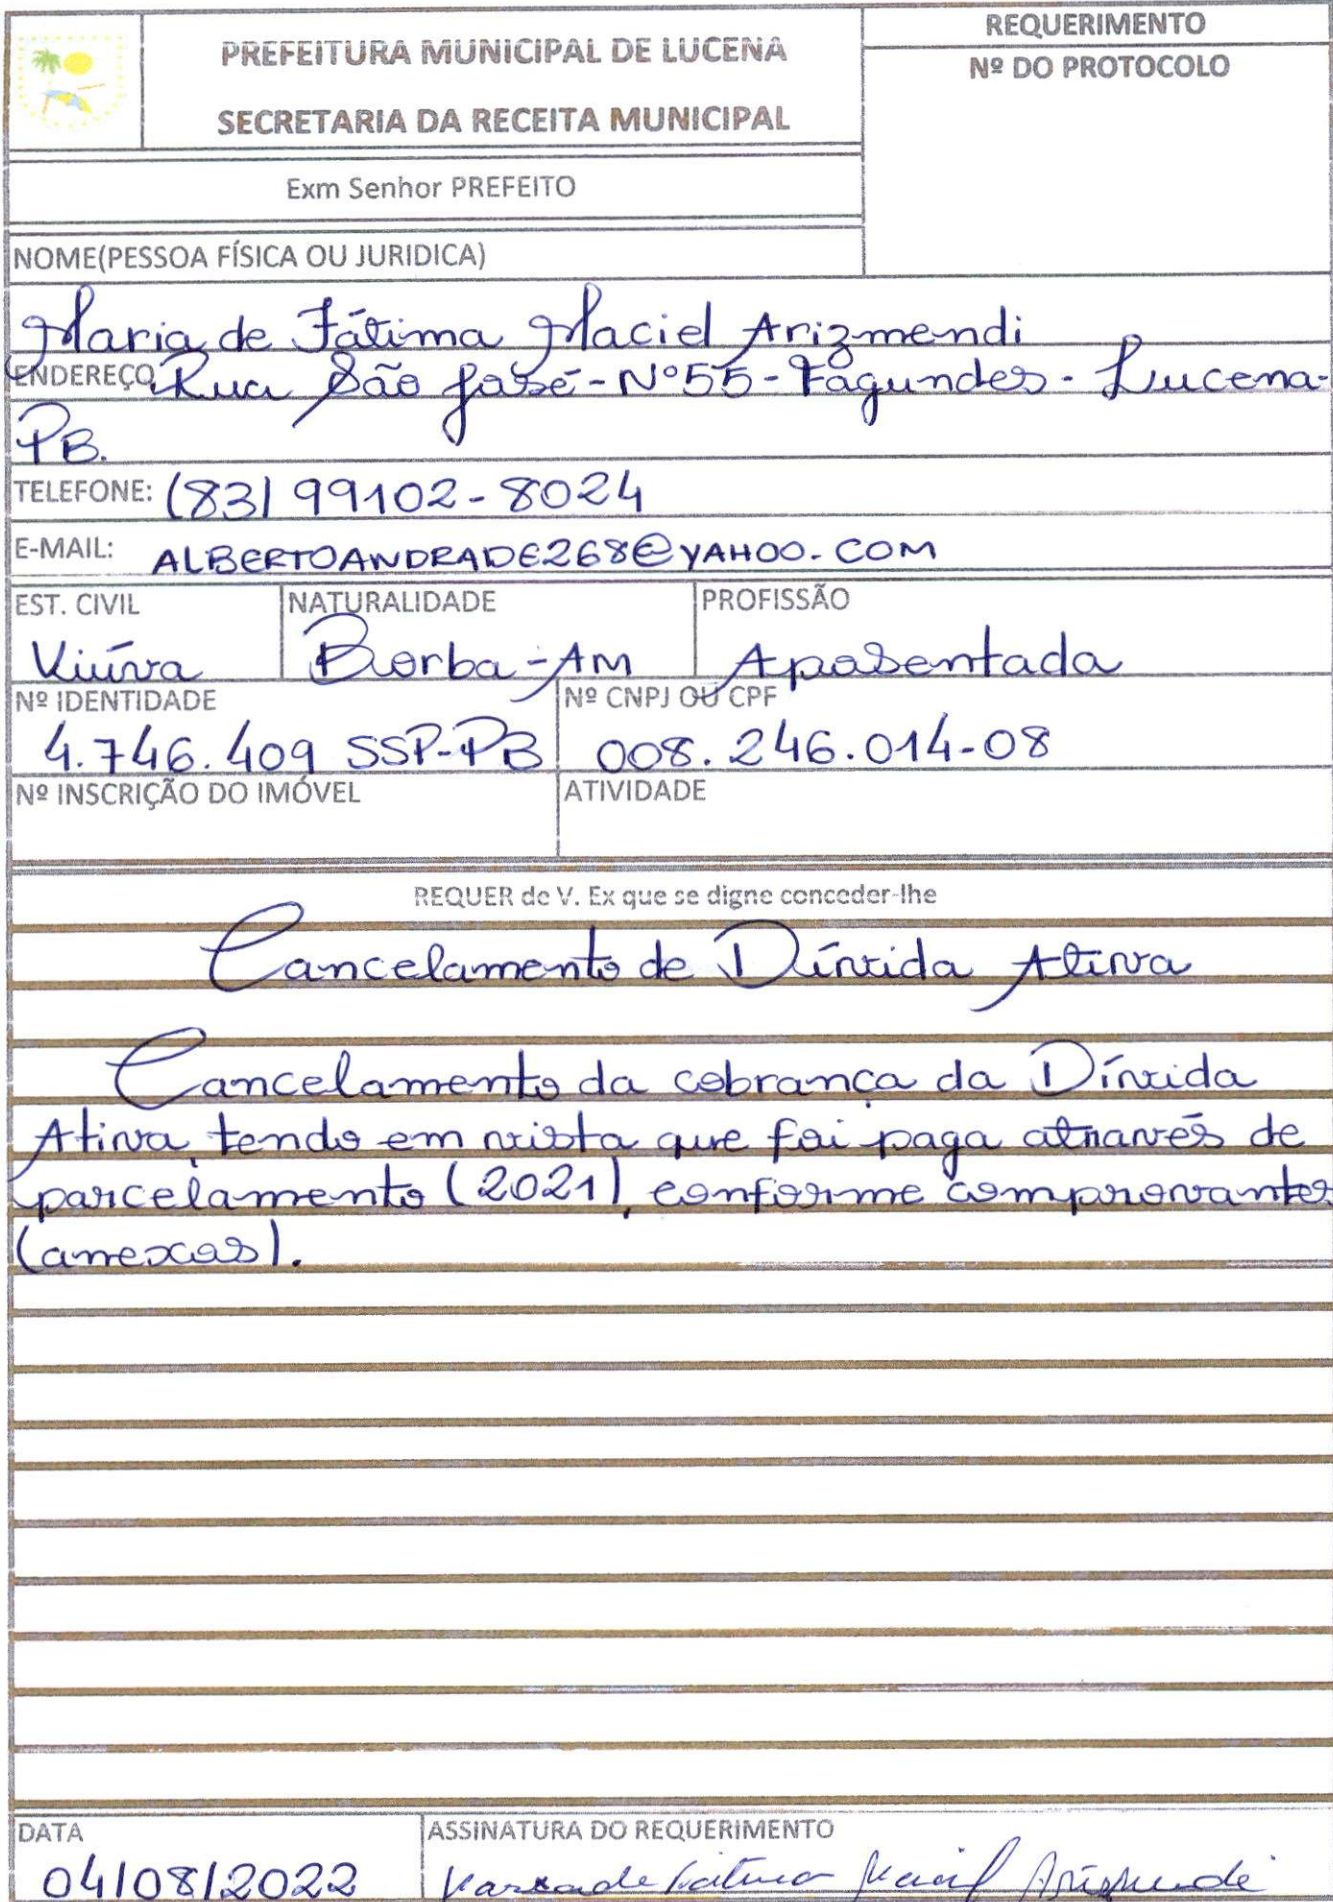 PREFEITURA MUNICIPAL DE LUCENA
SECRETARIA DA RECEITA MUNICIPAL
REQUERIMENTO
Nº DO PROTOCOLO
Exm Senhor PREFEITO
NOME(PESSOA FÍSICA OU JURIDICA)
Maria de Fátima Maciel Arizmendi
ENDEREÇO Rua São José - Nº 55 - Fagundes - Lucena-
PB.
TELEFONE: (83) 99102-8024
E-MAIL: ALBERTOANDRADE268@YAHOO.COM
EST. CIVIL NATURALIDADE PROFISSÃO
Viúva Borba-AM Aposentada
Nº IDENTIDADE Nº CNPJ OU CPF
4.746.409 SSP-PB 008.246.014-08
Nº INSCRIÇÃO DO IMÓVEL ATIVIDADE
REQUER de V. Ex que se digne conceder-lhe
Cancelamento de Dívida Ativa
Cancelamento da cobrança da Dívida
Ativa, tendo em vista que foi paga através de
parcelamento (2021), conforme comprovantes
(anexos).
DATA ASSINATURA DO REQUERIMENTO
04/08/2022 Maria de Fatima Maciel Arizmendi